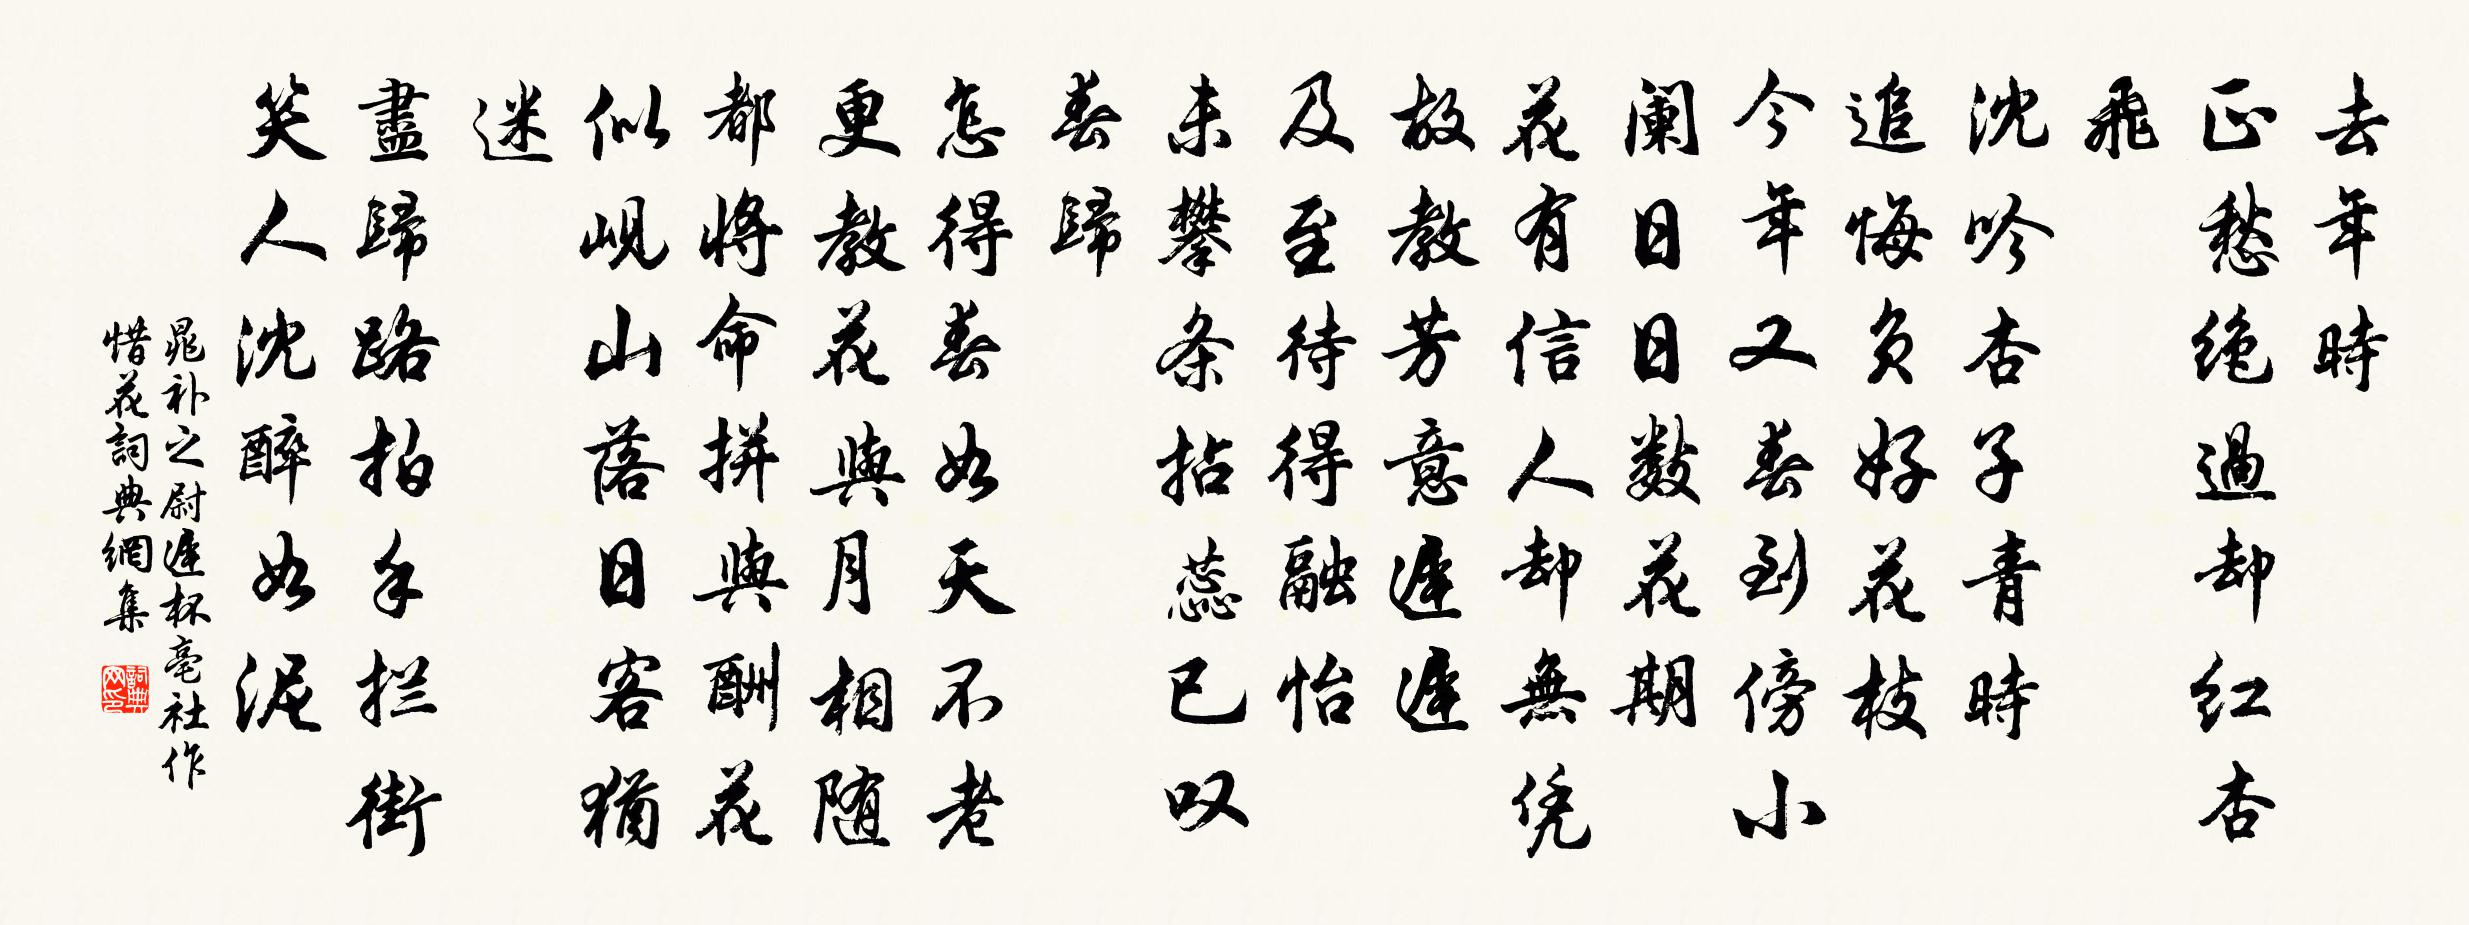 去年時
正愁绝過却红杏
飛
沈吟杏子青時
追悔负好花枝
今年又春到傍小
阑日日数花期
花有信人却無凭
故教芳意遲遲
及至待得融怡
未攀条拈蕊已叹
春歸
怎得春如天不老
更教花與月相随
都將命拼與酬花
似岘山落日客猶
迷
盡歸路拍手拦街
笑人沈醉如泥
晁补之尉遲杯亳社作
惜花詞典網集